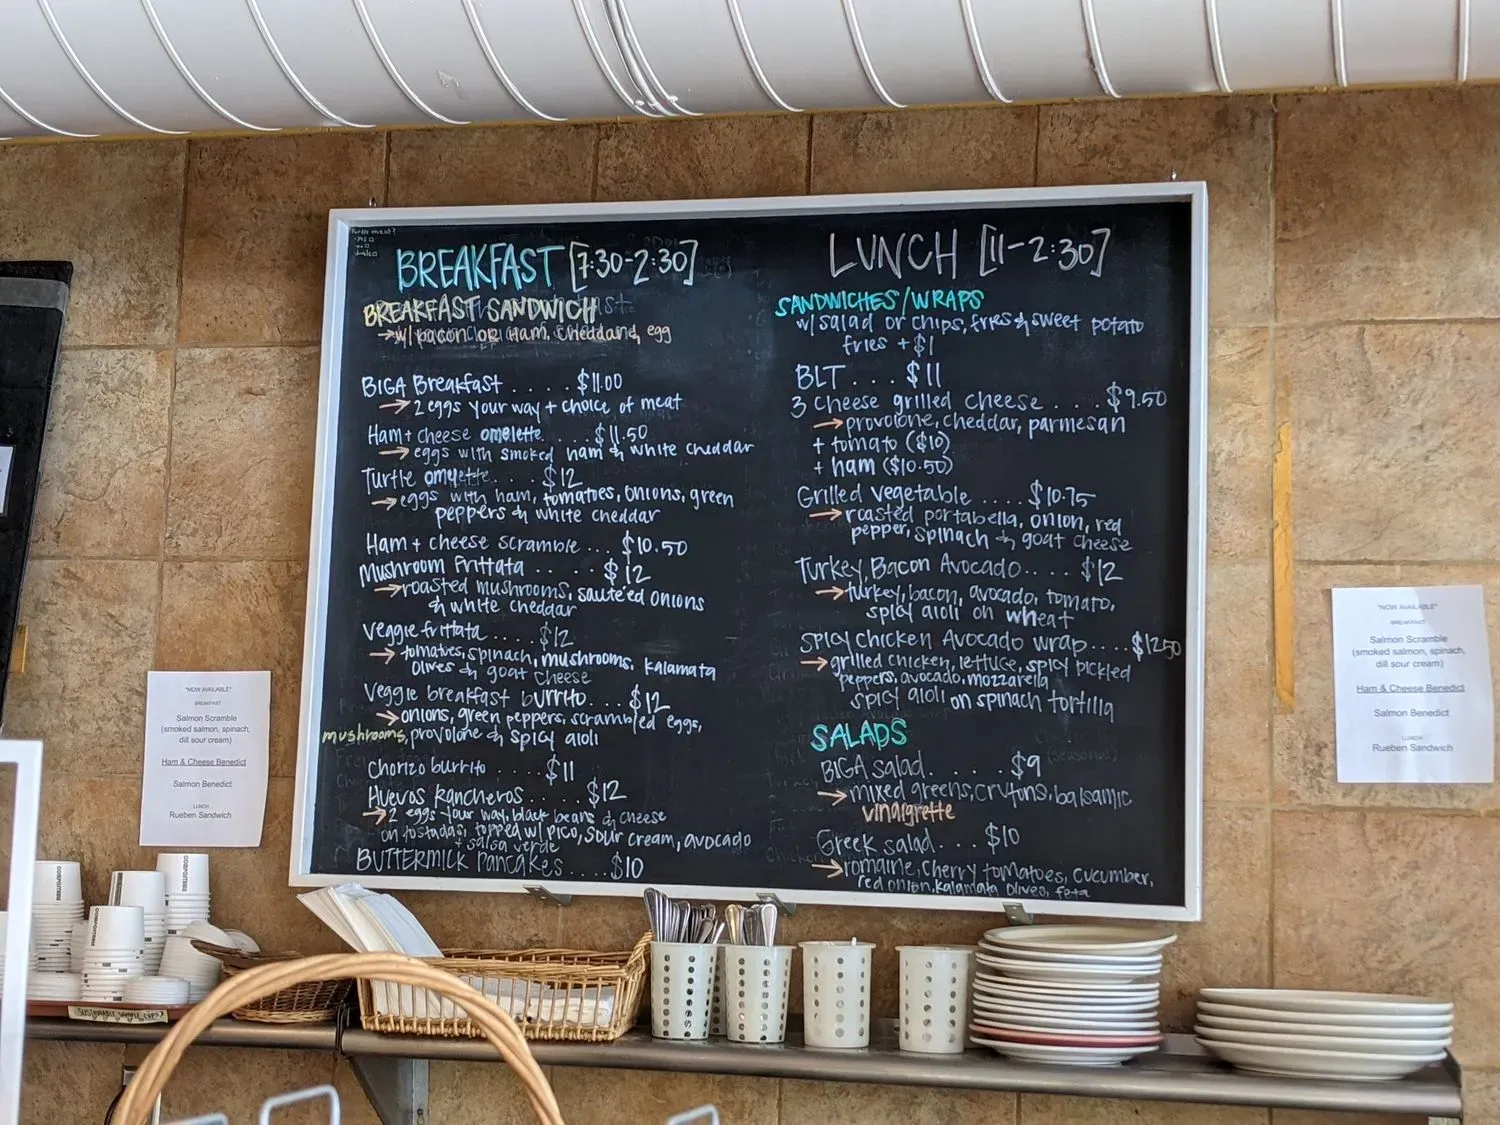 BREAKFAST [7:30-2:30]
BREAKFAST SANDWICH
→ w/ bacon or Ham, cheddar & egg
BIGA Breakfast . . . . $11.00
→ 2 eggs your way + choice of meat
Ham + cheese omelette. . . . $11.50
→ eggs with smoked ham & white cheddar
Turtle omelette. . . $12
→ eggs with ham, tomatoes, onions, green
peppers & white cheddar
Ham + cheese scramble . . . $10.50
Mushroom Frittata . . . . $12
→ roasted mushrooms, saute'ed onions
& white cheddar
Veggie frittata . . . . $12
→ tomatoes, spinach, mushrooms, kalamata
olives & goat cheese
Veggie breakfast burrito . . . $12
→ onions, green peppers, scrambled eggs,
mushrooms, provolone & spicy aioli
Chorizo burrito . . . . . $11
Huevos Rancheros . . . . $12
→ 2 eggs your way, black beans & cheese
on tostadas, topped w/ pico, sour cream, avocado
+ salsa verde
BUTTERMILK Pancakes . . . . $10
LUNCH [11-2:30]
SANDWICHES/WRAPS
w/ salad or chips, fries & sweet potato
fries + $1
BLT . . . $11
3 cheese grilled cheese . . . . $9.50
→ provolone, cheddar, parmesan
+ tomato ($10)
+ ham ($10.50)
Grilled vegetable . . . . $10.75
→ roasted portabella, onion, red
pepper, spinach & goat cheese
Turkey, Bacon Avocado. . . . $12
→ turkey, bacon, avocado, tomato,
spicy aioli on wheat
Spicy chicken Avocado wrap . . . . $12.50
→ grilled chicken, lettuce, spicy pickled
peppers, avocado, mozzarella
spicy aioli on spinach tortilla
SALADS
BIGA salad. . . . . $9
→ mixed greens, crutons, balsamic
vinaigrette
Greek salad. . . $10
→ romaine, cherry tomatoes, cucumber,
red onion, kalamata olives, feta
"NOW AVAILABLE"
BREAKFAST
Salmon Scramble
(smoked salmon, spinach,
dill sour cream)
Ham & Cheese Benedict
Salmon Benedict
LUNCH
Rueben Sandwich
"NOW AVAILABLE"
BREAKFAST
Salmon Scramble
(smoked salmon, spinach,
dill sour cream)
Ham & Cheese Benedict
Salmon Benedict
LUNCH
Rueben Sandwich